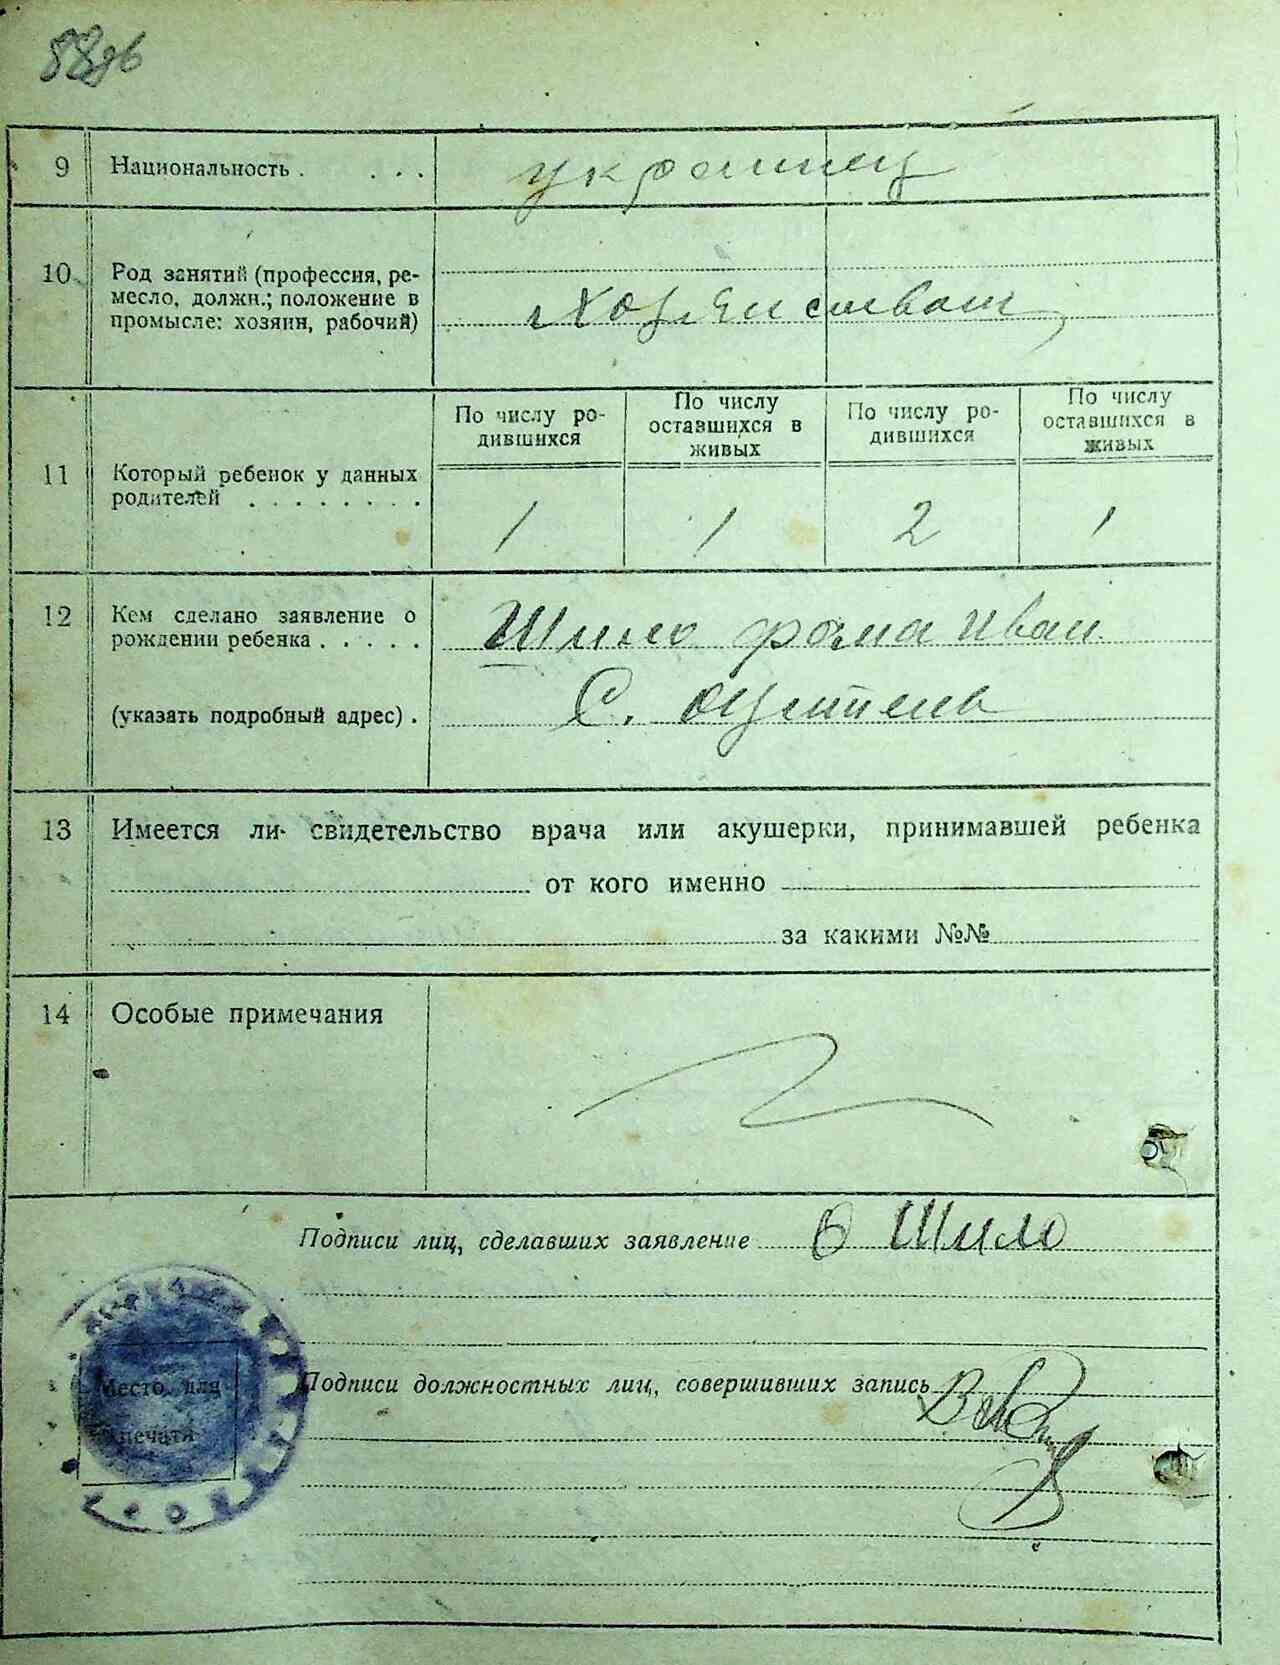 58об
9 Национальность . . . . украинец
10 Род занятий (профессия, ре-
месло, должн.; положение в
промысле: хозяин, рабочий)
По числу ро-
дившихся
По числу
оставшихся в
живых
По числу ро-
дившихся
По числу
оставшихся в
живых
11 Который ребенок у данных
родителей . . . . . . . .
1 1 2 1
12 Кем сделано заявление о
рождении ребенка . . . . . Шило фома Иван
(указать подробный адрес) . С.
13 Имеется ли свидетельство врача или акушерки, принимавшей ребенка
от кого именно
за какими №№
14 Особые примечания
Подписи лиц, сделавших заявление Шило
Подписи должностных лиц, совершивших запись
Место для
печати